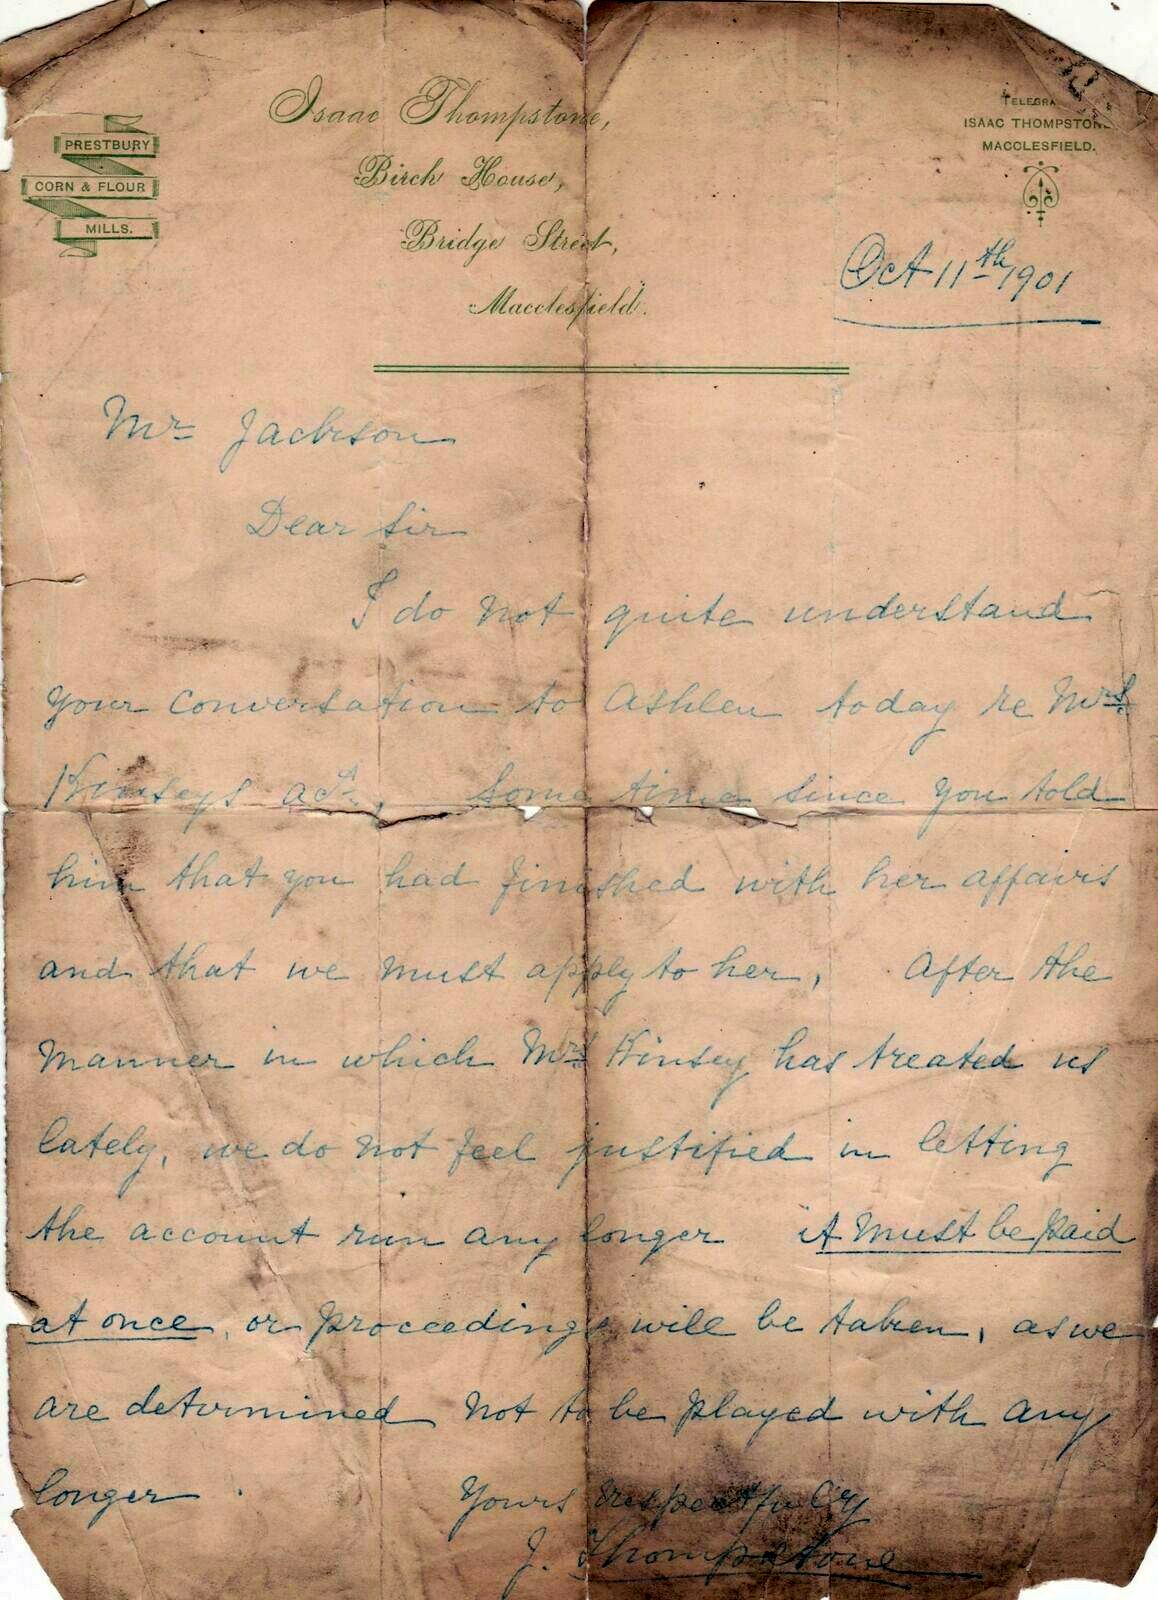 PRESTBURY
CORN & FLOUR
MILLS.
Isaac Thompstone,
Birch House,
Bridge Street,
Macclesfield.
ISAAC THOMPSTONE
MACCLESFIELD.
Oct 11th 1901
Mr Jackson
Dear Sir
I do not quite understand
your conversation to Ashlen today re Mrs.
Kinseys act, some time since you told
him that you had finished with her affairs
and that we must apply to her, After the
manner in which Mrs Kinsey has treated us
lately, we do not feel justified in letting
the account run any longer it must be paid
at once, or proceedings will be taken, as we
are determined not to be played with any
longer.
Yours respectfully
J. Thompstone